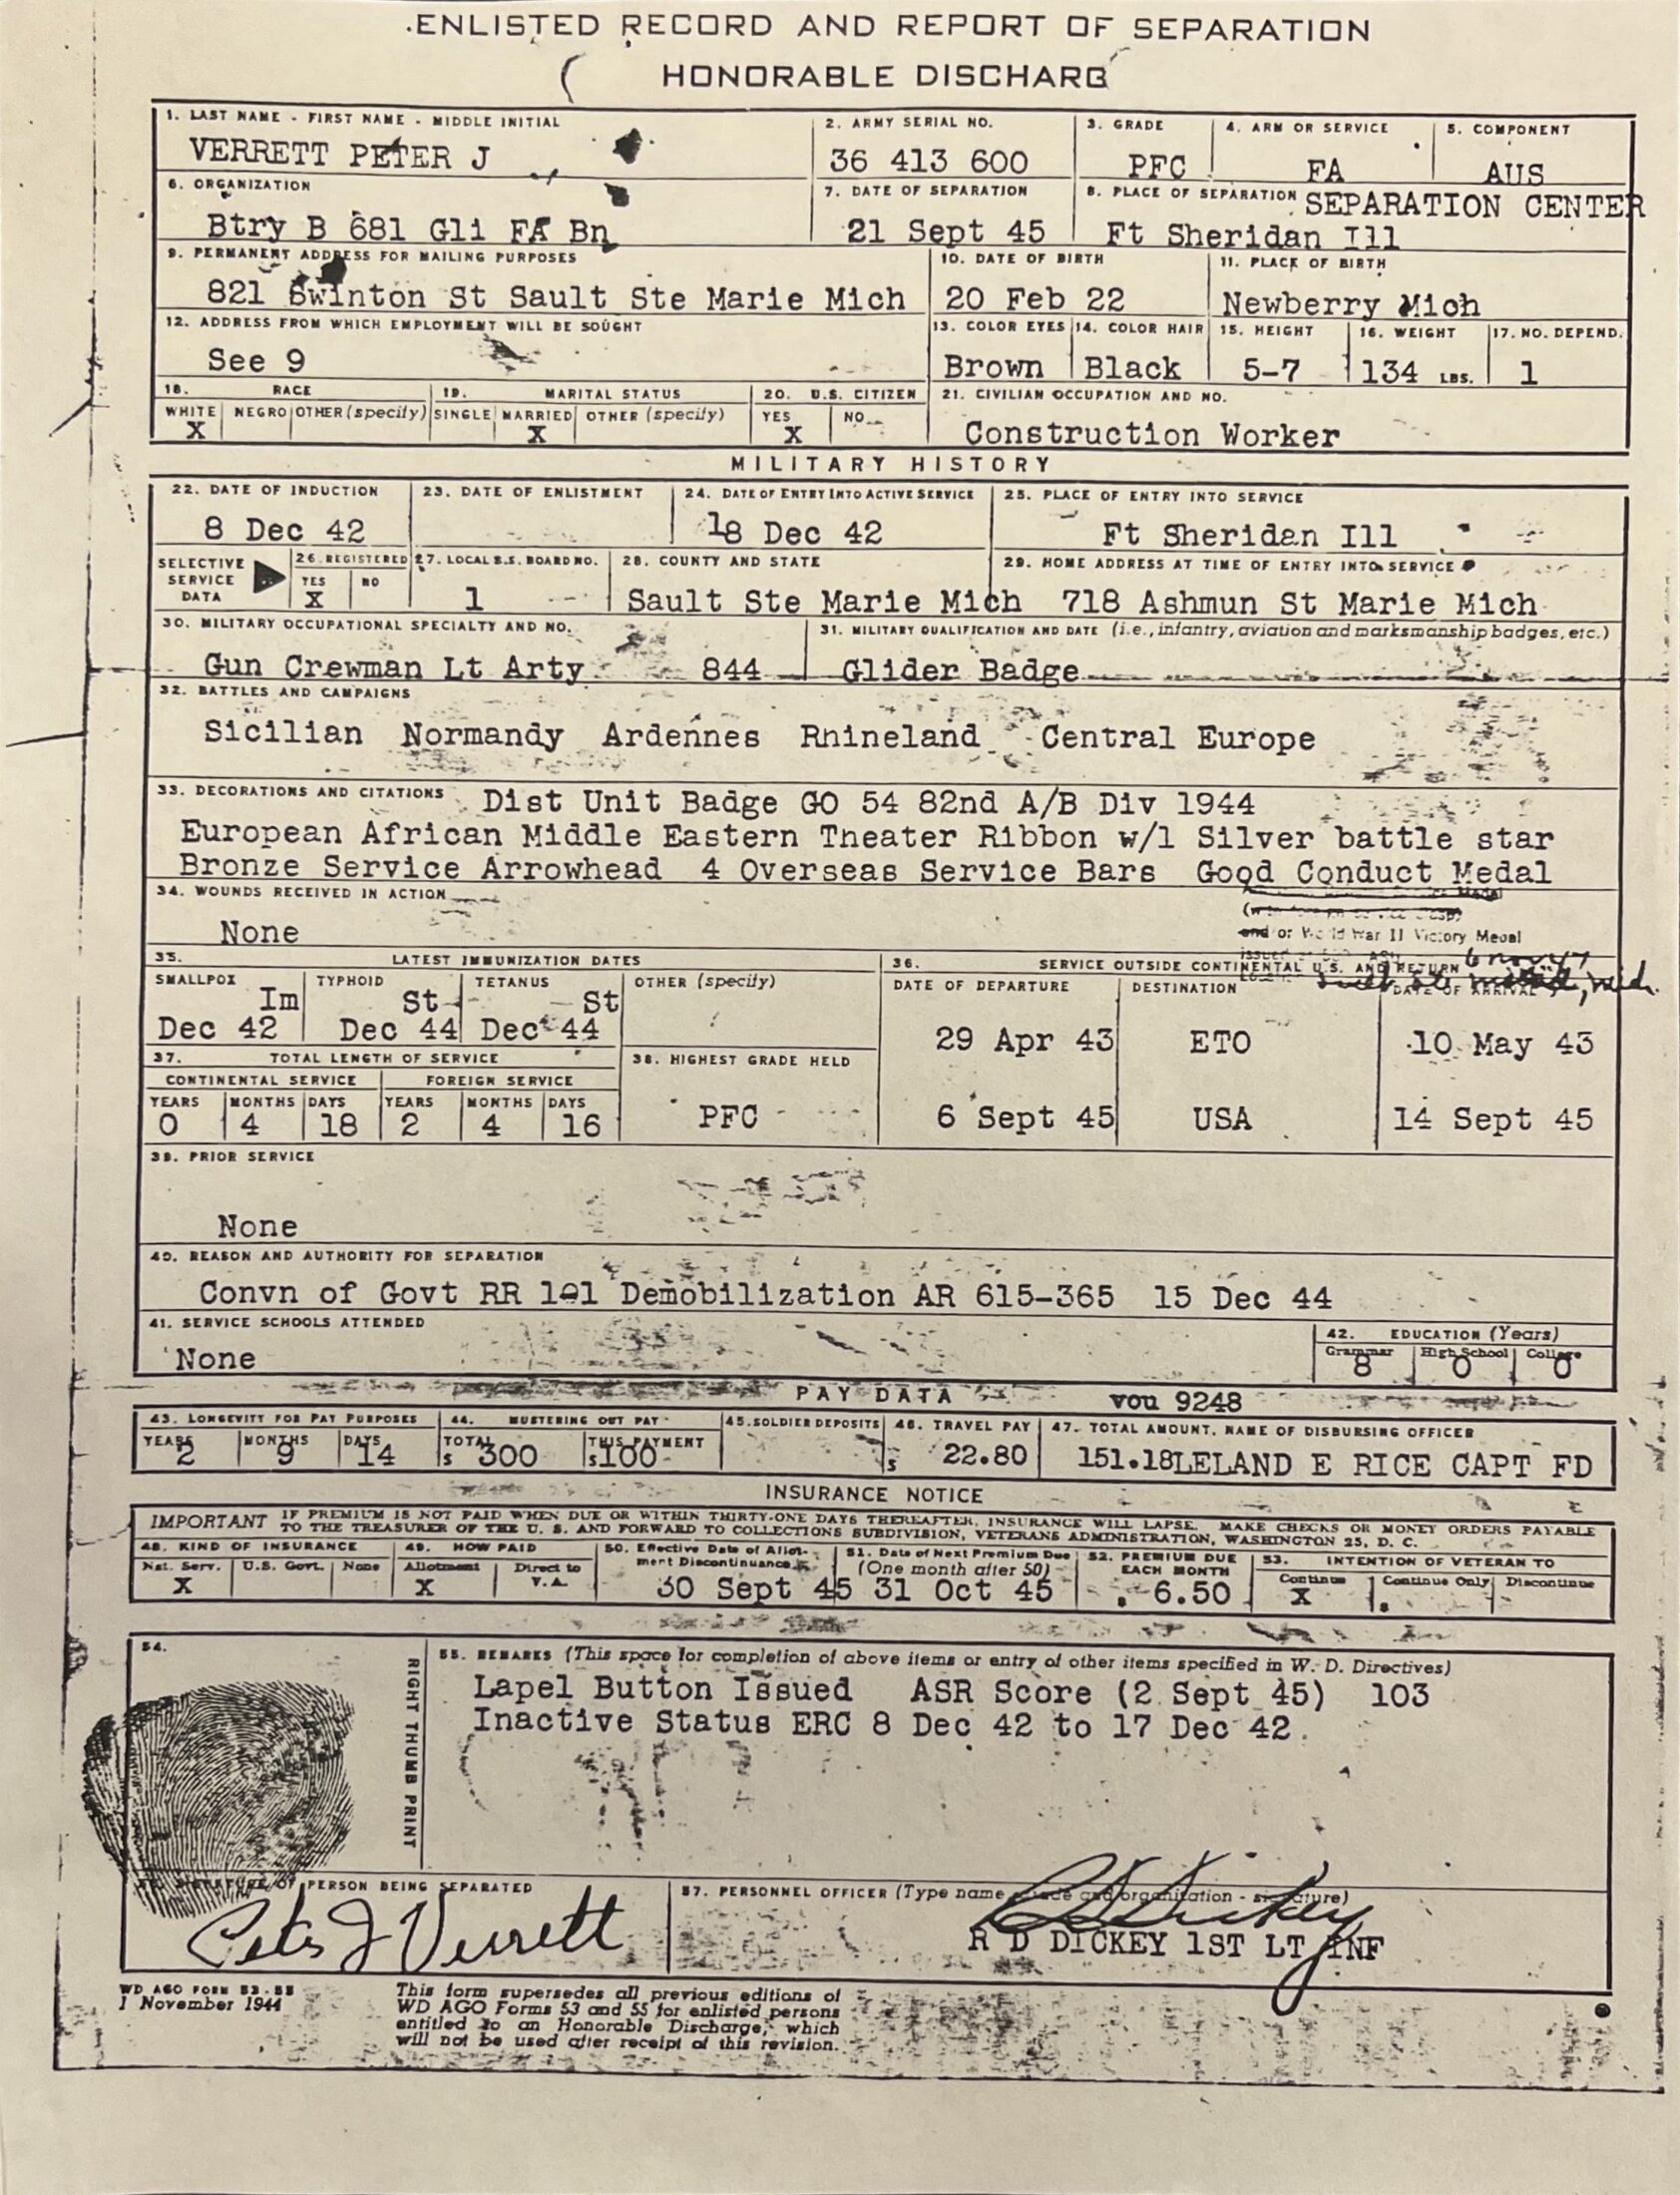 ENLISTED RECORD AND REPORT OF SEPARATION
HONORABLE DISCHARG
1. LAST NAME - FIRST NAME - MIDDLE INITIAL
VERRETT PETER J
2. ARMY SERIAL NO.
36 413 600
3. GRADE
PFC
4. ARM OR SERVICE
FA
5. COMPONENT
AUS
6. ORGANIZATION
Btry B 681 Gli FA Bn
7. DATE OF SEPARATION
21 Sept 45
8. PLACE OF SEPARATION SEPARATION CENTER
Ft Sheridan Ill
9. PERMANENT ADDRESS FOR MAILING PURPOSES
821 Swinton St Sault Ste Marie Mich
10. DATE OF BIRTH
20 Feb 22
11. PLACE OF BIRTH
Newberry Mich
12. ADDRESS FROM WHICH EMPLOYMENT WILL BE SOUGHT
See 9
13. COLOR EYES
Brown
14. COLOR HAIR
Black
15. HEIGHT
5-7
16. WEIGHT
134 LBS.
17. NO. DEPEND.
1
18. RACE
WHITE NEGRO OTHER (specify)
X
19. MARITAL STATUS
SINGLE MARRIED OTHER (specify)
X
20. U.S. CITIZEN
YES NO
X
21. CIVILIAN OCCUPATION AND NO.
Construction Worker
MILITARY HISTORY
22. DATE OF INDUCTION
8 Dec 42
23. DATE OF ENLISTMENT
24. DATE OF ENTRY INTO ACTIVE SERVICE
18 Dec 42
25. PLACE OF ENTRY INTO SERVICE
Ft Sheridan Ill
SELECTIVE SERVICE DATA
26 REGISTERED
YES NO
X
27. LOCAL S.S. BOARD NO.
1
28. COUNTY AND STATE
Sault Ste Marie Mich
29. HOME ADDRESS AT TIME OF ENTRY INTO SERVICE
718 Ashmun St Marie Mich
30. MILITARY OCCUPATIONAL SPECIALTY AND NO.
Gun Crewman Lt Arty 844
31. MILITARY QUALIFICATION AND DATE (i.e., infantry, aviation and marksmanship badges, etc.)
Glider Badge
32. BATTLES AND CAMPAIGNS
Sicilian Normandy Ardennes Rhineland Central Europe
33. DECORATIONS AND CITATIONS Dist Unit Badge GO 54 82nd A/B Div 1944
European African Middle Eastern Theater Ribbon w/1 Silver battle star
Bronze Service Arrowhead 4 Overseas Service Bars Good Conduct Medal
34. WOUNDS RECEIVED IN ACTION
None
and/or World War II Victory Medal
6 nov 47
35. LATEST IMMUNIZATION DATES
SMALLPOX
Im
Dec 42
TYPHOID
St
Dec 44
TETANUS
St
Dec 44
OTHER (specify)
36. SERVICE OUTSIDE CONTINENTAL U.S. AND RETURN
DATE OF DEPARTURE DESTINATION DATE OF ARRIVAL
29 Apr 43 ETO 10 May 43
6 Sept 45 USA 14 Sept 45
37. TOTAL LENGTH OF SERVICE
CONTINENTAL SERVICE FOREIGN SERVICE
YEARS MONTHS DAYS YEARS MONTHS DAYS
0 4 18 2 4 16
38. HIGHEST GRADE HELD
PFC
39. PRIOR SERVICE
None
40. REASON AND AUTHORITY FOR SEPARATION
Convn of Govt RR 1-1 Demobilization AR 615-365 15 Dec 44
41. SERVICE SCHOOLS ATTENDED
None
42. EDUCATION (Years)
Grammar High School College
8 0 0
PAY DATA vou 9248
43. LONGEVITY FOR PAY PURPOSES
YEARS MONTHS DAYS
2 9 14
44. MUSTERING OUT PAY
TOTAL THIS PAYMENT
$ 300 $100
45. SOLDIER DEPOSITS
46. TRAVEL PAY
$ 22.80
47. TOTAL AMOUNT, NAME OF DISBURSING OFFICER
151.18LELAND E RICE CAPT FD
INSURANCE NOTICE
IMPORTANT IF PREMIUM IS NOT PAID WHEN DUE OR WITHIN THIRTY-ONE DAYS THEREAFTER, INSURANCE WILL LAPSE. MAKE CHECKS OR MONEY ORDERS PAYABLE
TO THE TREASURER OF THE U. S. AND FORWARD TO COLLECTIONS SUBDIVISION, VETERANS ADMINISTRATION, WASHINGTON 25, D. C.
48. KIND OF INSURANCE
Nat. Serv. U.S. Govt. None
X
49. HOW PAID
Allotment Direct to V.A.
X
50. Effective Date of Allotment Discontinuance
30 Sept 45
51. Date of Next Premium Due (One month after 50)
31 Oct 45
52. PREMIUM DUE EACH MONTH
6.50
53. INTENTION OF VETERAN TO
Continue Continue Only Discontinue
X
54.
RIGHT THUMB PRINT
55. REMARKS (This space for completion of above items or entry of other items specified in W. D. Directives)
Lapel Button Issued ASR Score (2 Sept 45) 103
Inactive Status ERC 8 Dec 42 to 17 Dec 42
SIGNATURE OF PERSON BEING SEPARATED
Peter J Verrett
57. PERSONNEL OFFICER (Type name, grade and organization - signature)
R D Dickey
R D DICKEY 1ST LT INF
WD AGO FORM 53-55
1 November 1944
This form supersedes all previous editions of
WD AGO Forms 53 and 55 for enlisted persons
entitled to an Honorable Discharge, which
will not be used after receipt of this revision.